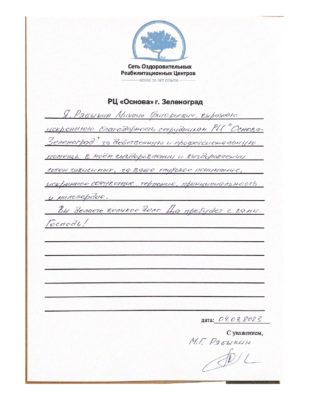 Сеть Оздоровительных
Реабилитационных Центров
РЦ «Основа» г. Зеленоград
Я, Рябыкин Михаил Григорьевич, выражаю
искреннюю благодарность сотрудникам РЦ "Основа-
Зеленоград" за действенную и профессиональную
помощь в моём выздоровлении и выздоровлении
зависимых, за ваше глубокое понимание,
искреннее терпение, принципиальность
и милосердие.
Вы делаете великое дело. Да пребудет с вами
Господь!
дата: 04.02.2023
С уважением,
М.Г. Рябыкин